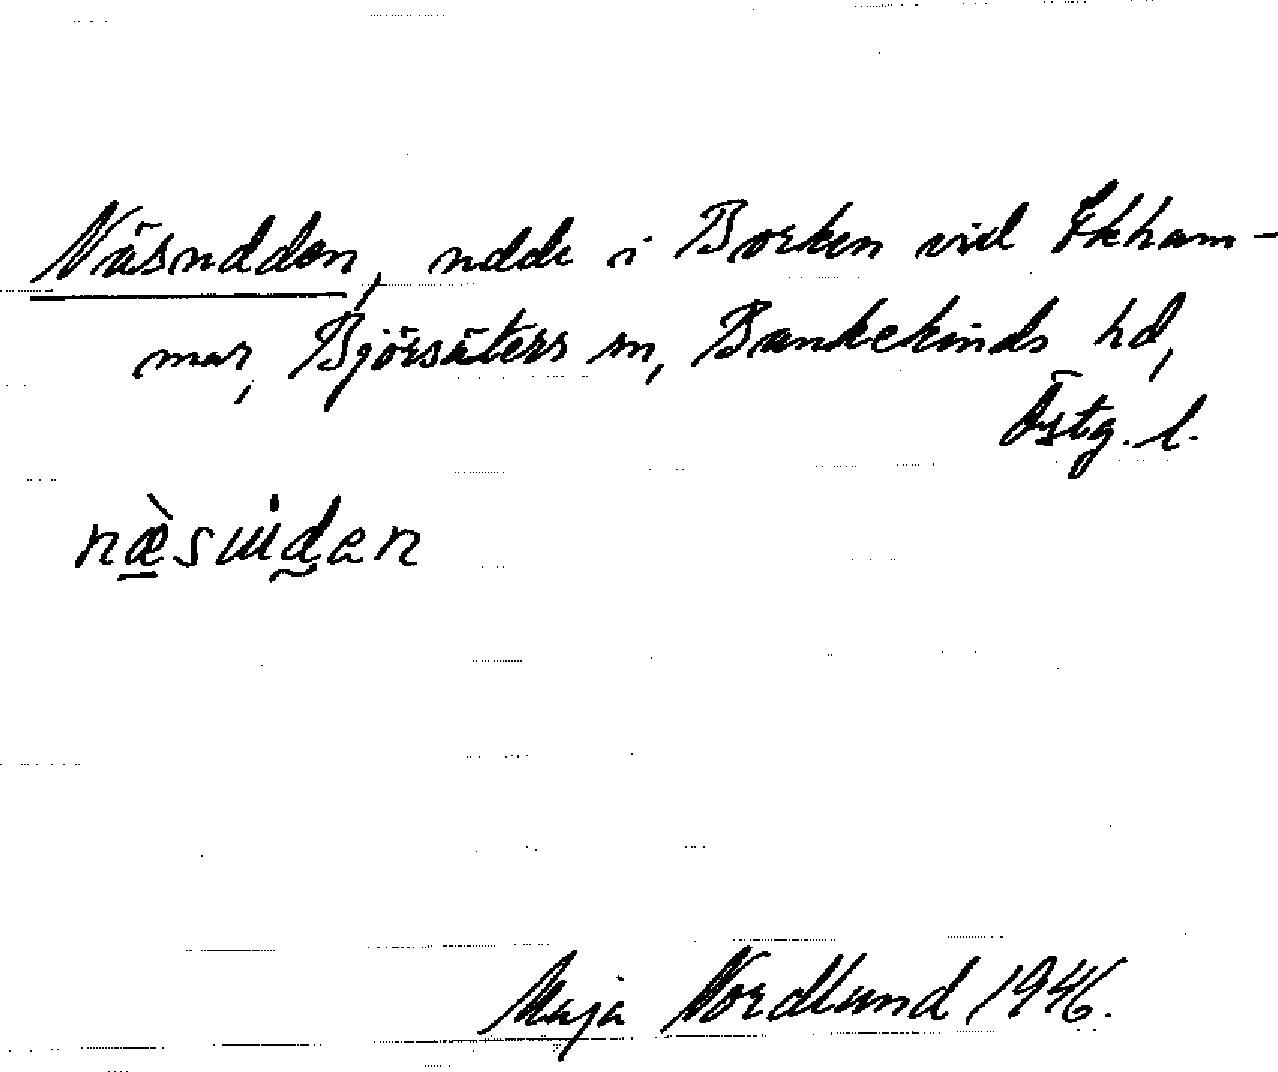 Näsudden, udde i Borken vid Ekham-
mar, Björsäters sn, Bankekinds hd,
Östg. l.
næ̀suden
Maja Nordlund 1946.